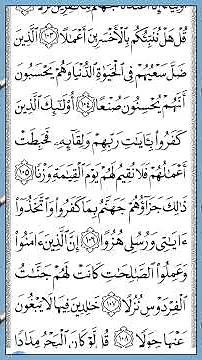 قُلْ هَلْ نُنَبِّئُكُم بِالْأَخْسَرِينَ أَعْمَالًا ١٠٣ الَّذِينَ
ضَلَّ سَعْيُهُمْ فِي الْحَيَاةِ الدُّنْيَا وَهُمْ يَحْسَبُونَ
أَنَّهُمْ يُحْسِنُونَ صُنْعًا ١٠٤ أُولَٰئِكَ الَّذِينَ
كَفَرُوا بِآيَاتِ رَبِّهِمْ وَلِقَائِهِ فَحَبِطَتْ
أَعْمَالُهُمْ فَلَا نُقِيمُ لَهُمْ يَوْمَ الْقِيَامَةِ وَزْنًا ١٠٥
ذَٰلِكَ جَزَاؤُهُمْ جَهَنَّمُ بِمَا كَفَرُوا وَاتَّخَذُوا
آيَاتِي وَرُسُلِي هُزُوًا ١٠٦ إِنَّ الَّذِينَ آمَنُوا
وَعَمِلُوا الصَّالِحَاتِ كَانَتْ لَهُمْ جَنَّاتُ
الْفِرْدَوْسِ نُزُلًا ١٠٧ خَالِدِينَ فِيهَا لَا يَبْغُونَ
عَنْهَا حِوَلًا ١٠٨ قُل لَّوْ كَانَ الْبَحْرُ مِدَادًا